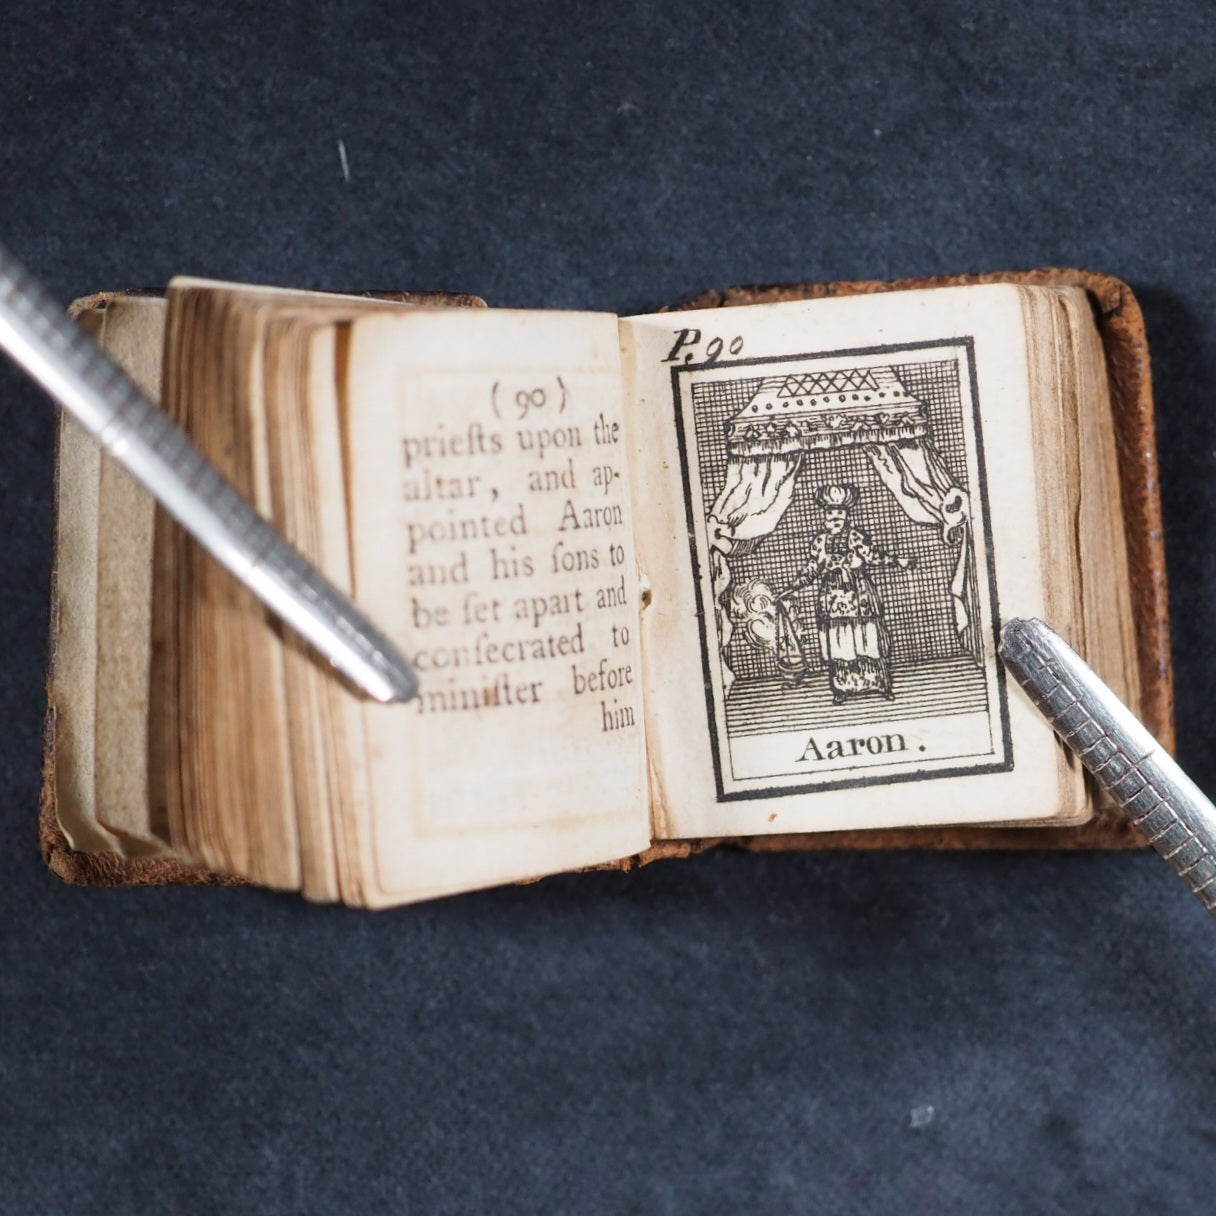 (90)
prieſts upon the
altar, and ap-
pointed Aaron
and his ſons to
be ſet apart and
conſecrated to
miniſter before
him
P. 90
Aaron.